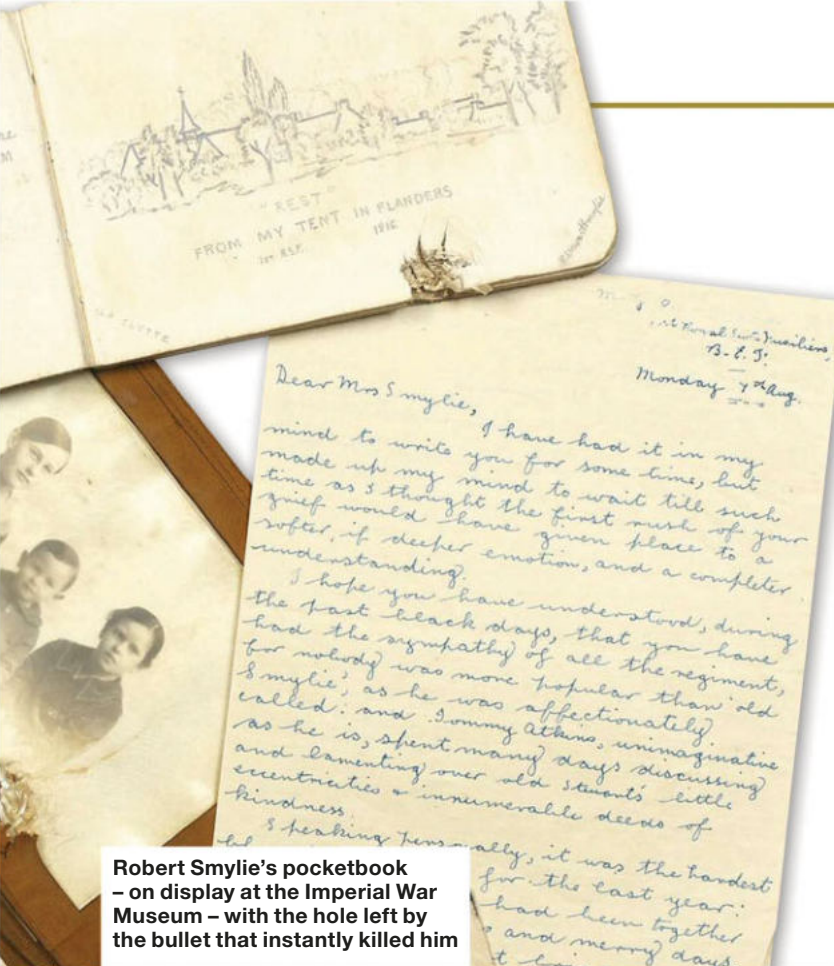 "REST"
FROM MY TENT IN FLANDERS
1st R.S.F. 1916
1st Royal Scots Fusiliers,
B.E.F.
Monday 7th Aug.
Dear Mrs Smylie,
I have had it in my
mind to write you for some time, but
made up my mind to wait till such
time as I thought the first rush of your
grief would have given place to a
softer, if deeper emotion, and a completer
understanding.
I hope you have understood, during
the past black days, that you have
had the sympathy of all the regiment,
for nobody was more popular than 'old
Smylie', as he was affectionately
called: and Tommy Atkins, unimaginative
as he is, spent many days discussing
and lamenting over old Stewart's little
eccentricities & innumerable deeds of
kindness.
Speaking personally, it was the hardest
for the last year:
had been together
and merry days
Robert Smylie's pocketbook
– on display at the Imperial War
Museum – with the hole left by
the bullet that instantly killed him